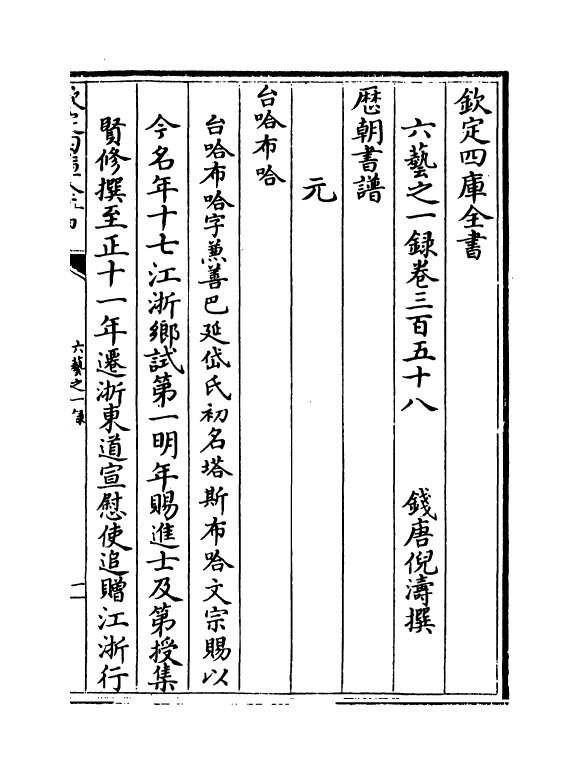 欽定四庫全書
六藝之一録卷三百五十八　錢唐倪濤撰
歴朝書譜
元
台哈布哈
台哈布哈字兼善巴延岱氏初名塔斯布哈文宗賜以
今名年十七江浙鄉試第一明年賜進士及第授集
賢修撰至正十一年遷浙東道宣慰使追贈江浙行
六藝之一録